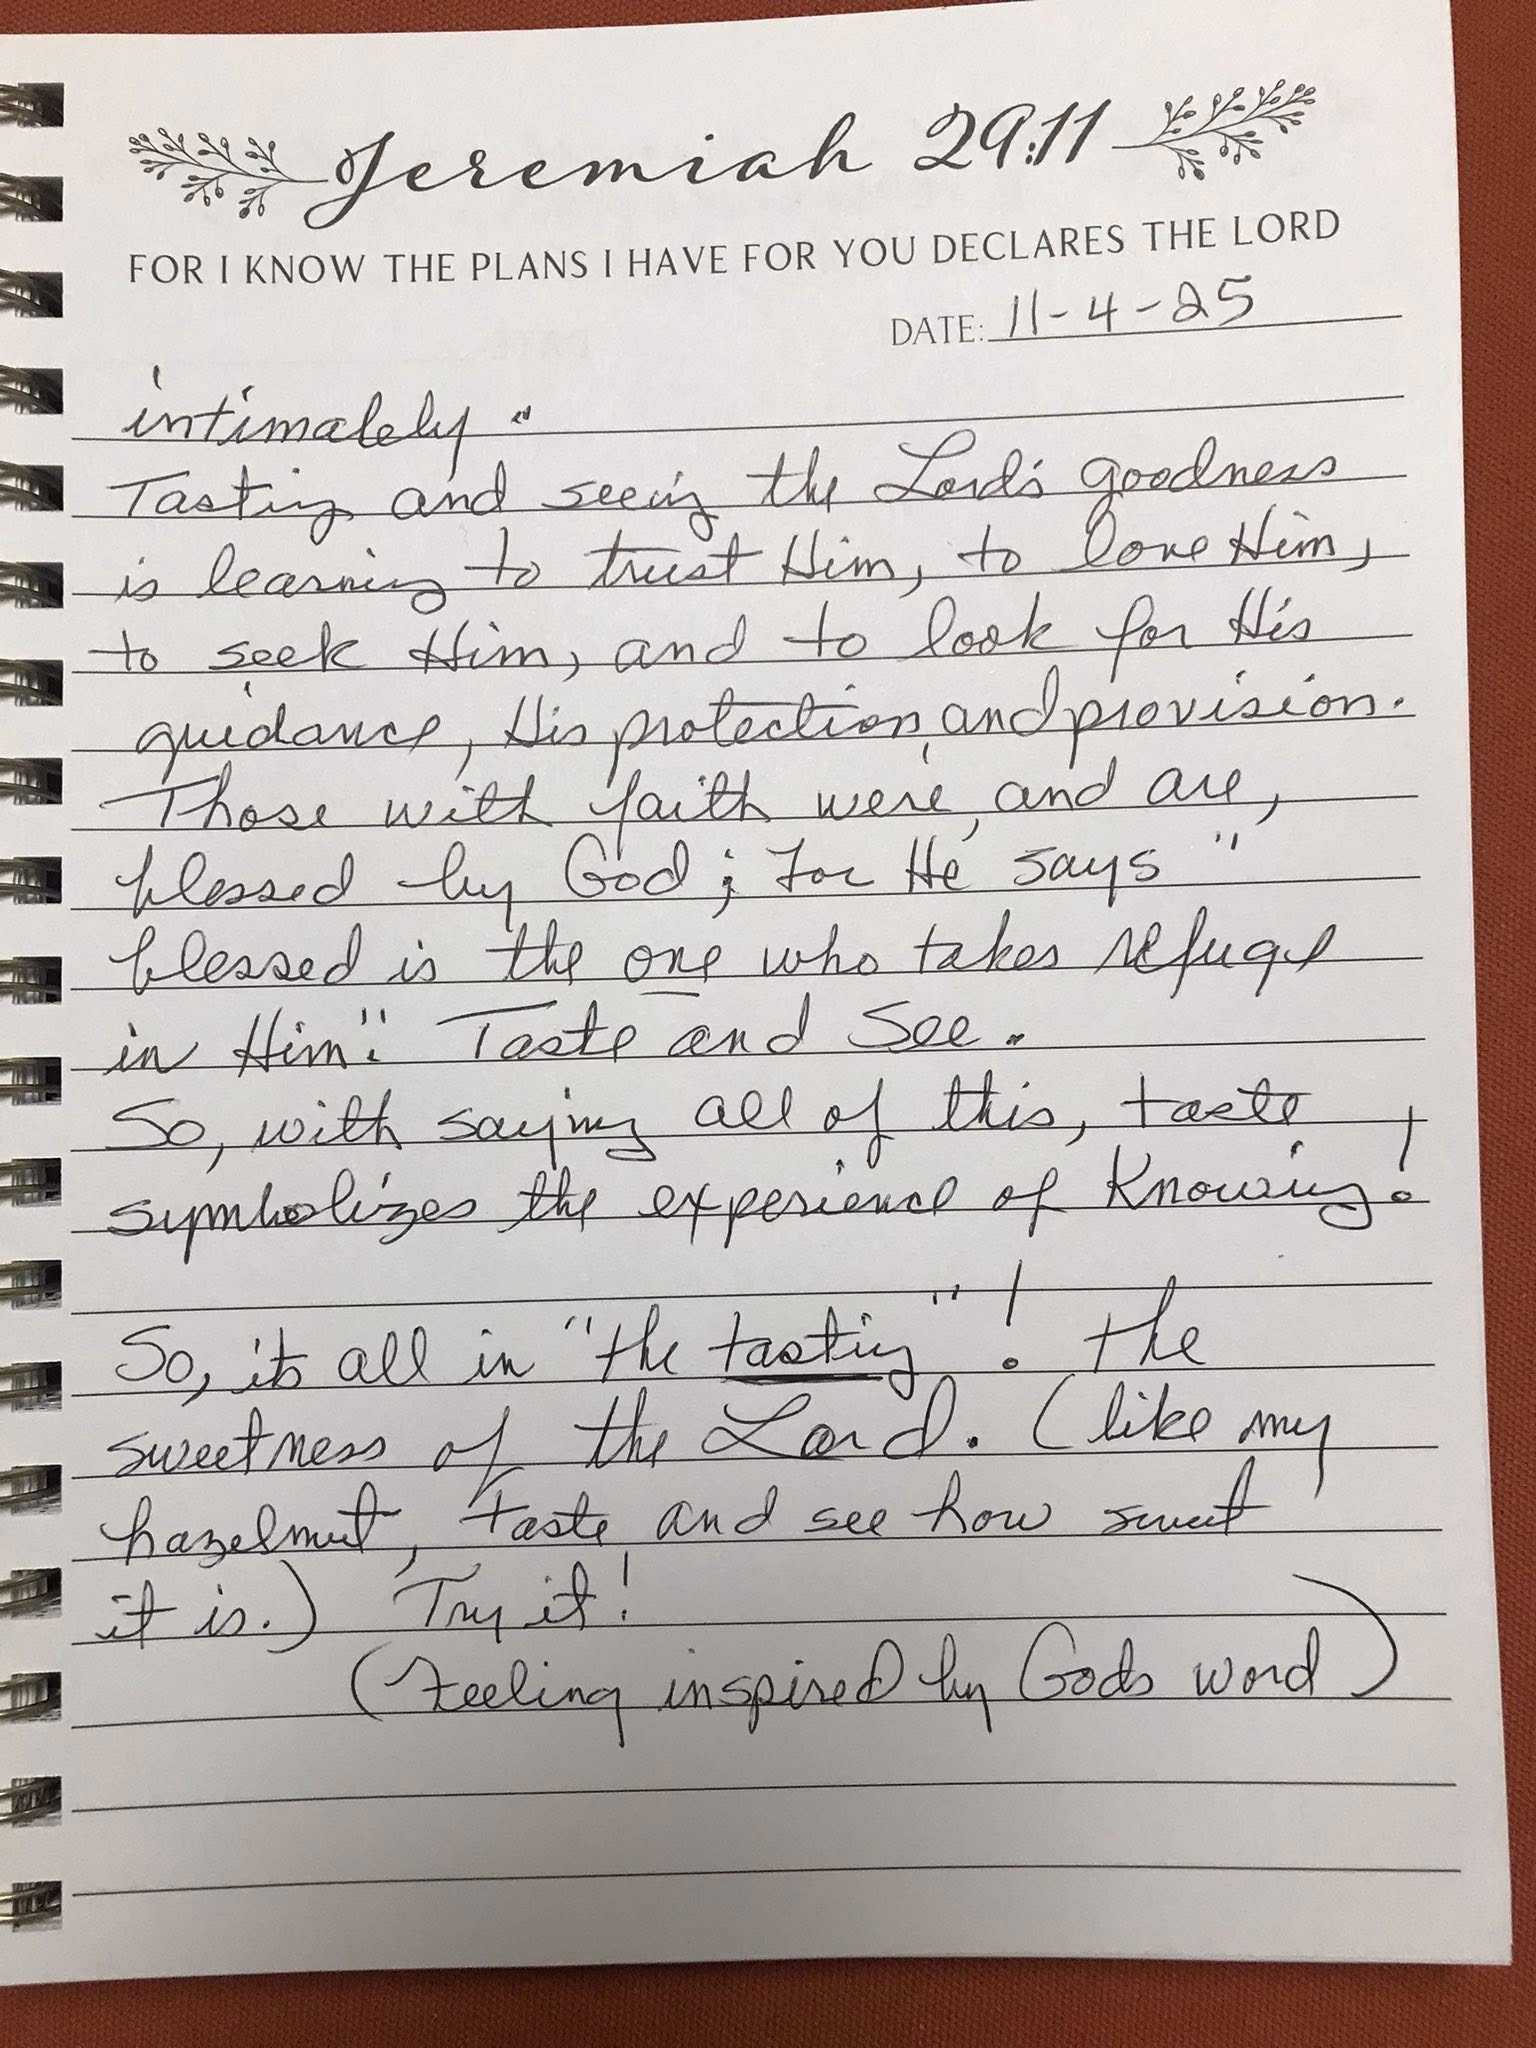 Jeremiah 29:11
FOR I KNOW THE PLANS I HAVE FOR YOU DECLARES THE LORD
DATE: 11-4-25
intimately."
Tasting and seeing the Lord's goodness
is learning to trust Him, to love Him,
to seek Him, and to look for His
guidance, His protection, and provision.
Those with faith were, and are,
blessed by God; for He says "
blessed is the one who takes refuge
in Him". Taste and See.
So, with saying all of this, taste
symbolizes the experience of Knowing!
So, its all in "the tasting"! the
sweetness of the Lord. (like my
hazelnut, taste and see how sweet
it is.) Try it!
(feeling inspired by Gods word)